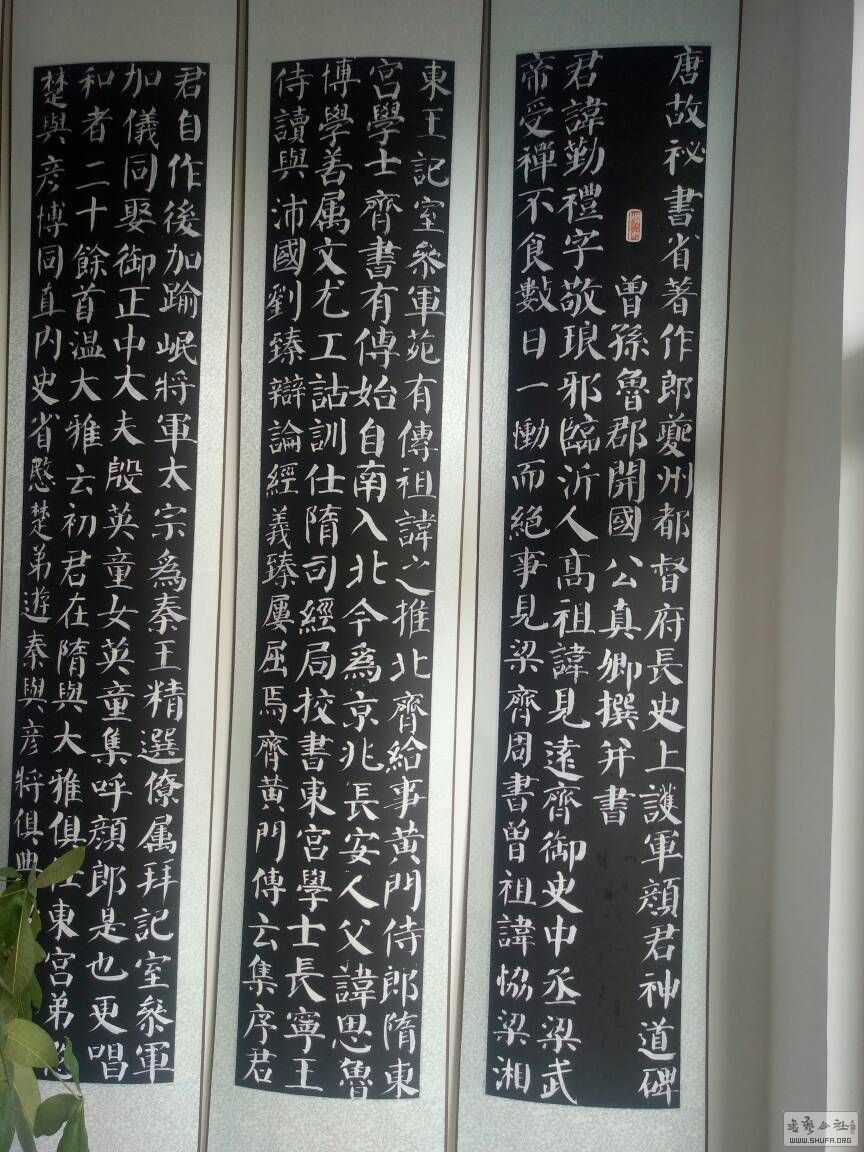 唐故祕書省著作郎夔州都督府長史上護軍顏君神道碑
曾孫魯郡開國公真卿撰并書
君諱勤禮字敬琅邪臨沂人高祖諱見遠齊御史中丞梁武
帝受禪不食數日一慟而絕事見梁齊周書曾祖諱協梁湘
東王記室參軍苑有傳祖諱之推北齊給事黃門侍郎隋東
宮學士齊書有傳始自南入北今為京兆長安人父諱思魯
博學善属文尤工詁訓仕隋司經局挍書東宮學士長寧王
侍讀與沛國劉臻辯論經義臻屢屈焉齊黃門傳云集序君
君自作後加踰岷將軍太宗為秦王精選僚属拜記室參軍
加儀同娶御正中大夫殷英童女英童集呼顏郎是也更唱
和者二十餘首温大雅云初君在隋與大雅俱仕東宮弟愍
楚與彥博同直內史省愍楚弟遊秦與彥將俱典
书艺公社
WWW.SHUFA.ORG